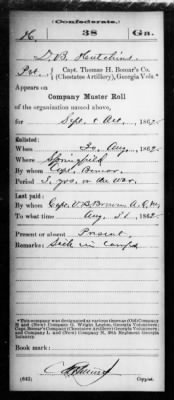 (Confederate.)
H. 38 Ga.
T. B. Hutchins
Pvt., Capt. Thomas H. Bomar's Co.
(Chestatee Artillery), Georgia Vols.*
Appears on
Company Muster Roll
of the organization named above,
for Sept. & Oct., 1862.
Enlisted:
When Aug., 1862.
Where Springfield
By whom Capt. Bomar
Period 3 yrs. or the war.
Last paid:
By whom Capt. A. Q. M.
To what time Aug. 31, 1862.
Present or absent Present
Remarks: Sick in camp
*This company was designated at various times as (Old) Company
H and (New) Company G, Wright Legion, Georgia Volunteers;
Capt. Bomar's Company (Chestatee Artillery) Georgia Volunteers;
and Company L and (New) Company N, 38th Regiment Georgia
Infantry.
Book mark:
(642)
Copyist.